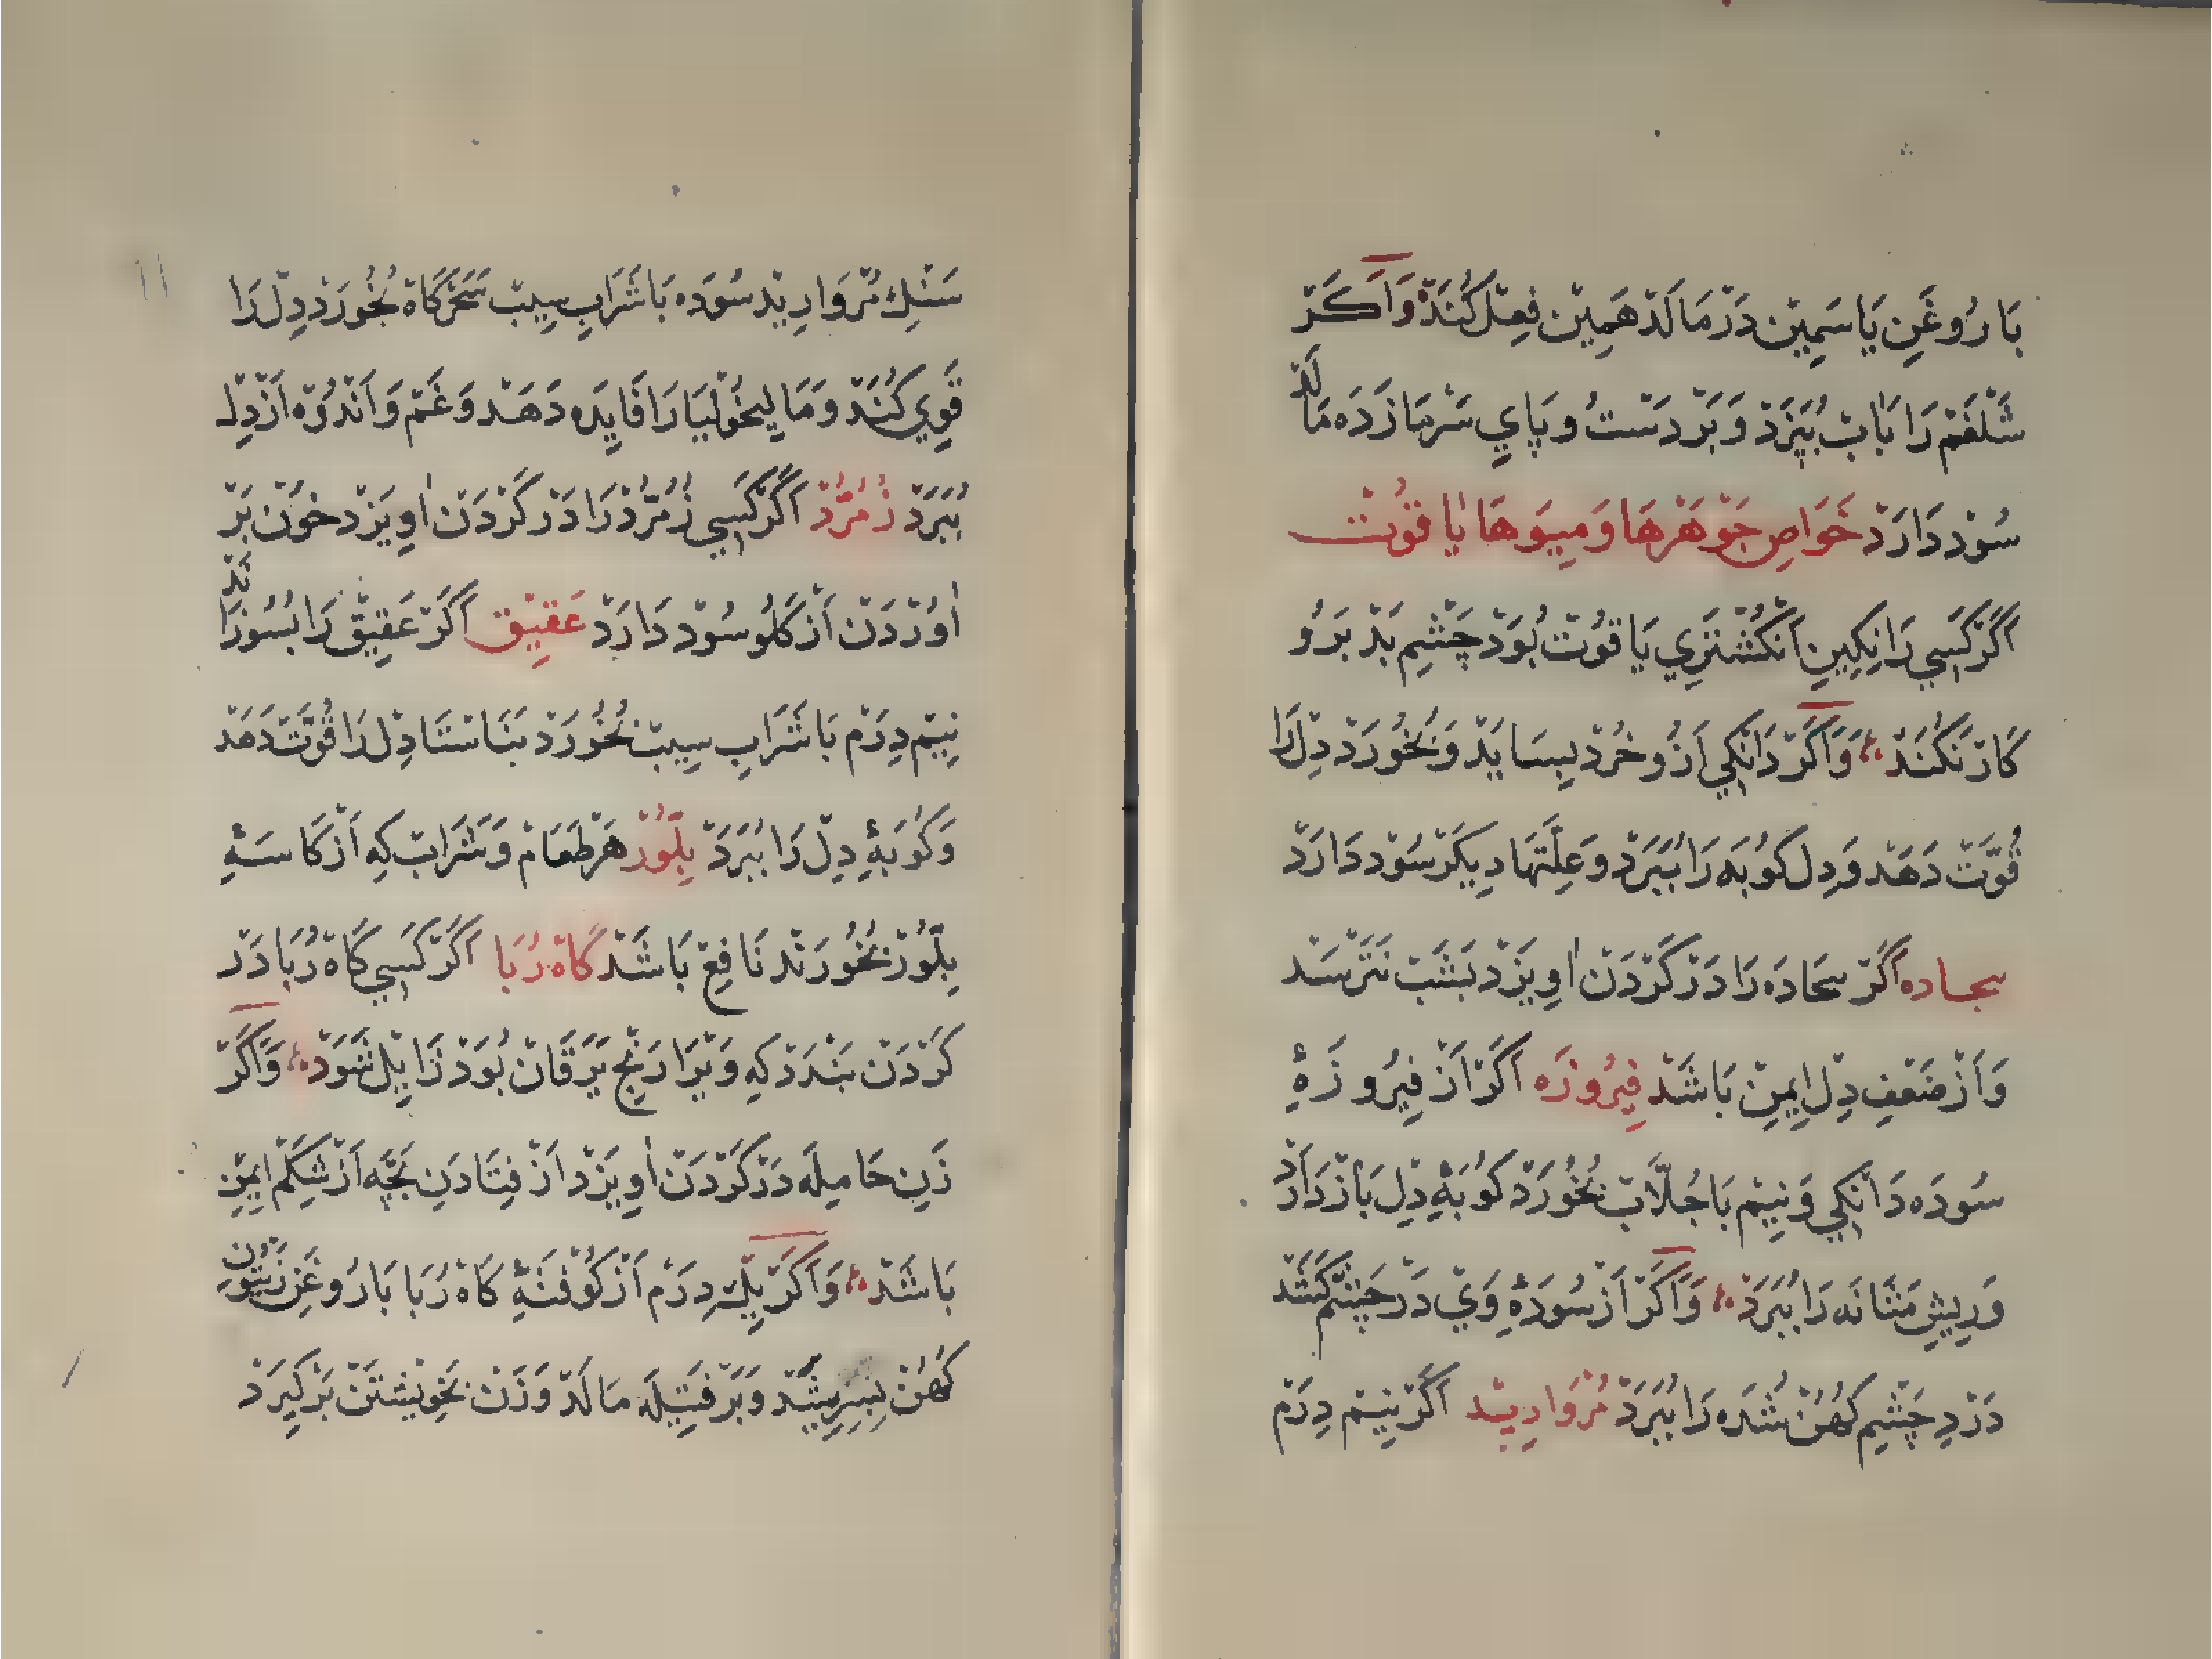 بَا رُوغَنِ يَاسَمِيْن دَرْ مَالَدْ هَمِيْن فِعِل كُنَدْ وَاَكَرْ
شَلْغَمْ رَا بَابْ بُپَزَدْ وَبَرْ دَسْتُ وپَايِ سَرْمَا زَدَه مَالَدْ
سُوْد دَارَدْ خَوَاصِ جَوْهَرْهَا وَمِيوَهَا يَاقُوتْ
اَكَرْ كَسِي رَا نِكِينِ اَنْكُشْتَرِي يَاقُوتْ بُوَدْ چَشْمِ بَدْ بَرُو
كَارْ نَكُنَدْ وَاَكَرْ دَانْكِي اَزُو خُرْد بِسَايَدْ وَبُخُورَدْ دِلْ رَا
قُوَّتْ دَهَدْ وَدِل كُوبَه رَا بُبَرَدْ وَعِلَّتْهَا دِيكَرْ سُوْد دَارَدْ
سجاده اَكَرْ سجَادَه رَا دَرْ كَرْدَنْ اُوِيزَدْ بَشَبْ نَتَرْسَدْ
وَاَزْ ضَعْفِ دِل اِيمِنْ بَاشَدْ فِيرُوزَه اَكَرْ اَزْ فِيرُوزَهِٔ
سُودَه دَانْكِي وَنِيمْ بَا جُلَّابْ بُخُورَدْ كُوبَهِٔ دِل بَازْ دَارَدْ
وَرِيشِ مَثَانَه رَا بُبَرَدْ وَاَكَرْ اَزْ سُودَهِٔ وَيْ دَرْ چَشْم كَشَدْ
دَرْدِ چَشْمِ كُهُنْ شُدَه رَا بُبَرَدْ مُرْوَارِيدْ اَكَرْ نِيمْ دِرَمْ
سَنْكِ مُرْوَارِيدْ سُوْدَه بَا شَرَابِ سِيبْ سَحَرْكَاهْ بُخُورَدْ دِلْ رَا
قَوِي كُنَدْ وَمَالِيخُولْيَا رَا فَايِدَه دَهَدْ وَغَمْ وَاَنْدُوْه اَزْ دِل
بُبَرَدْ زُمُرُّدْ اَكَرْ كَسِي زُمُرُّدْ رَا دَرْ كَرْدَنْ اُوِيزَدْ خوُنْ بَرْ
اوُرْدَنْ اَزْ كَلُو سُوْد دَارَدْ عَقِيْق اَكَرْ عَقِيْق رَا بسُوزَانَدْ
نِيمْ دِرَمْ بَا شَرَابِ سِيبْ بُخُورَدْ بَنَاشْتَا دِلْ رَا قُوَّتْ دَهَدْ
وَكُوبَهِٔ دِلْ رَا بُبَرَدْ بِلَّوُرْ هَرْ طَعَامْ وَشَرَابْ كِه اَزْ كَاسَهِٔ
بِلَّوُرْ بُخُورَنْد نَافِعْ بَاشَدْ كَاهْ رُبَا اَكَرْ كَسِي كَاهْ رُبَا دَرْ
كَرْدَنْ بَنْدَدْ كِه وَيْرَا رَنْج يَرَقَانْ بُوَدْ زَايِلْ شَوَدْ وَاَكَرْ
زَنِ حَامِلَه دَرْ كَرْدَنْ اُوِيزَدْ اَزْ فِتَادَنِ بَچَّه اَزْ شِكَمْ ايِمِنْ
بَاشَدْ وَاَكَرْ يِكْ دِرَمْ اَزْ كُوفْتَهِٔ كَاهْ رُبَا بَا رُوغَنِ زَيْتُونِ
كُهُنْ بِسِرِيشَدْ وَبَرْ فَتِيلَه مَالَدْ وَزَنْ بَخِوِيشْتَنْ بَرْكِيرَدْ
١١